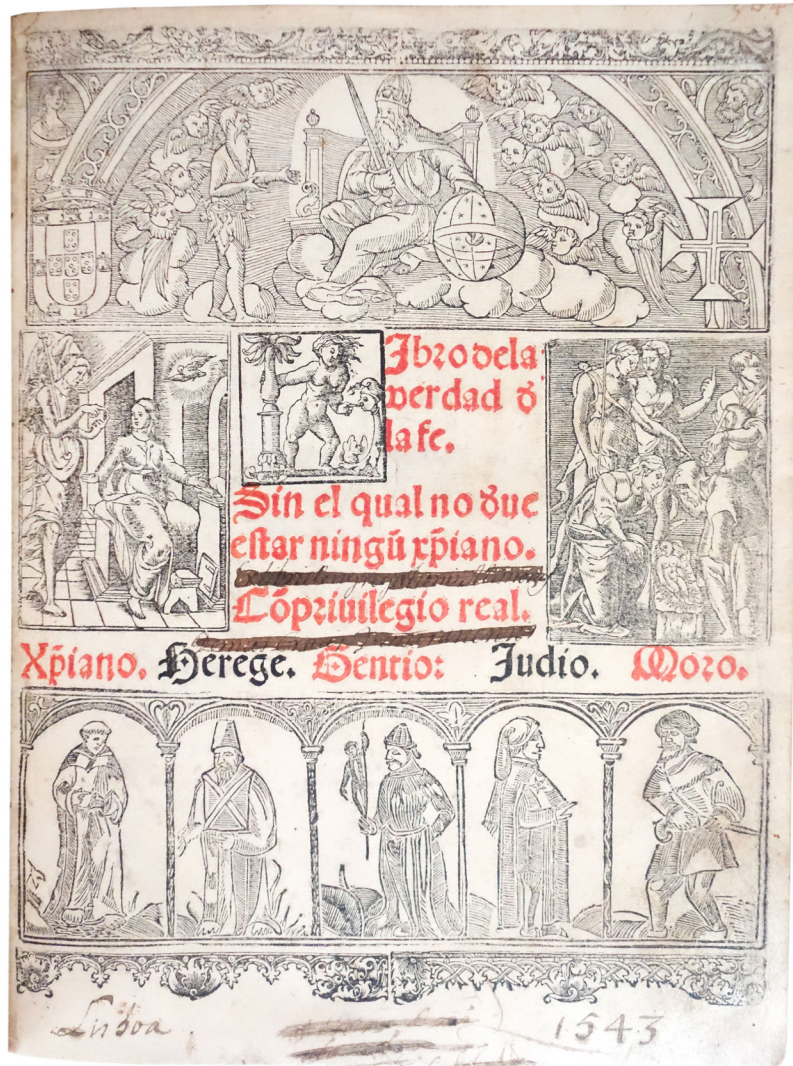 Libro dela
verdad đ
la fe.
Sin el qual no đue
estar ningũ xp̃iano.
Cõpriuilegio real.
Xp̃iano. Herege. Gentio: Judio. Moro.
Lisboa 1543